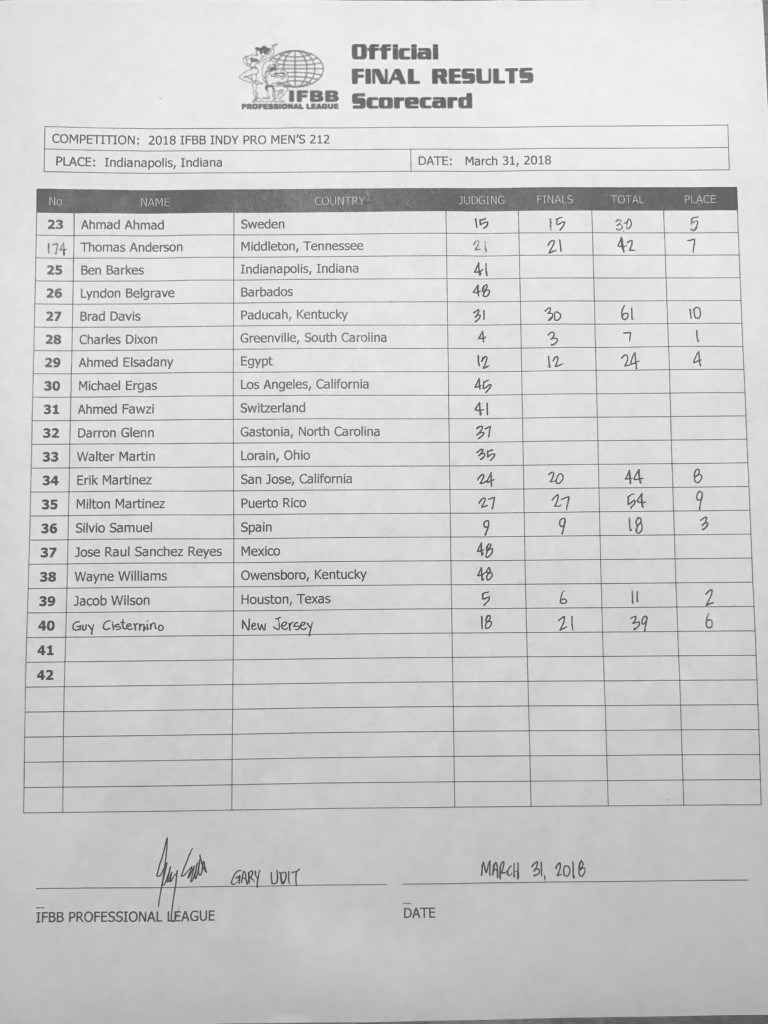 Official
FINAL RESULTS
Scorecard
IFBB
PROFESSIONAL LEAGUE
COMPETITION: 2018 IFBB INDY PRO MEN'S 212
PLACE: Indianapolis, Indiana DATE: March 31, 2018
No NAME COUNTRY JUDGING FINALS TOTAL PLACE
23 Ahmad Ahmad Sweden 15 15 30 5
174 Thomas Anderson Middleton, Tennessee 21 21 42 7
25 Ben Barkes Indianapolis, Indiana 41
26 Lyndon Belgrave Barbados 48
27 Brad Davis Paducah, Kentucky 31 30 61 10
28 Charles Dixon Greenville, South Carolina 4 3 7 1
29 Ahmed Elsadany Egypt 12 12 24 4
30 Michael Ergas Los Angeles, California 45
31 Ahmed Fawzi Switzerland 41
32 Darron Glenn Gastonia, North Carolina 37
33 Walter Martin Lorain, Ohio 35
34 Erik Martinez San Jose, California 24 20 44 8
35 Milton Martinez Puerto Rico 27 27 54 9
36 Silvio Samuel Spain 9 9 18 3
37 Jose Raul Sanchez Reyes Mexico 48
38 Wayne Williams Owensboro, Kentucky 48
39 Jacob Wilson Houston, Texas 5 6 11 2
40 Guy Cisternino New Jersey 18 21 39 6
41
42
GARY UDIT MARCH 31, 2018
IFBB PROFESSIONAL LEAGUE DATE